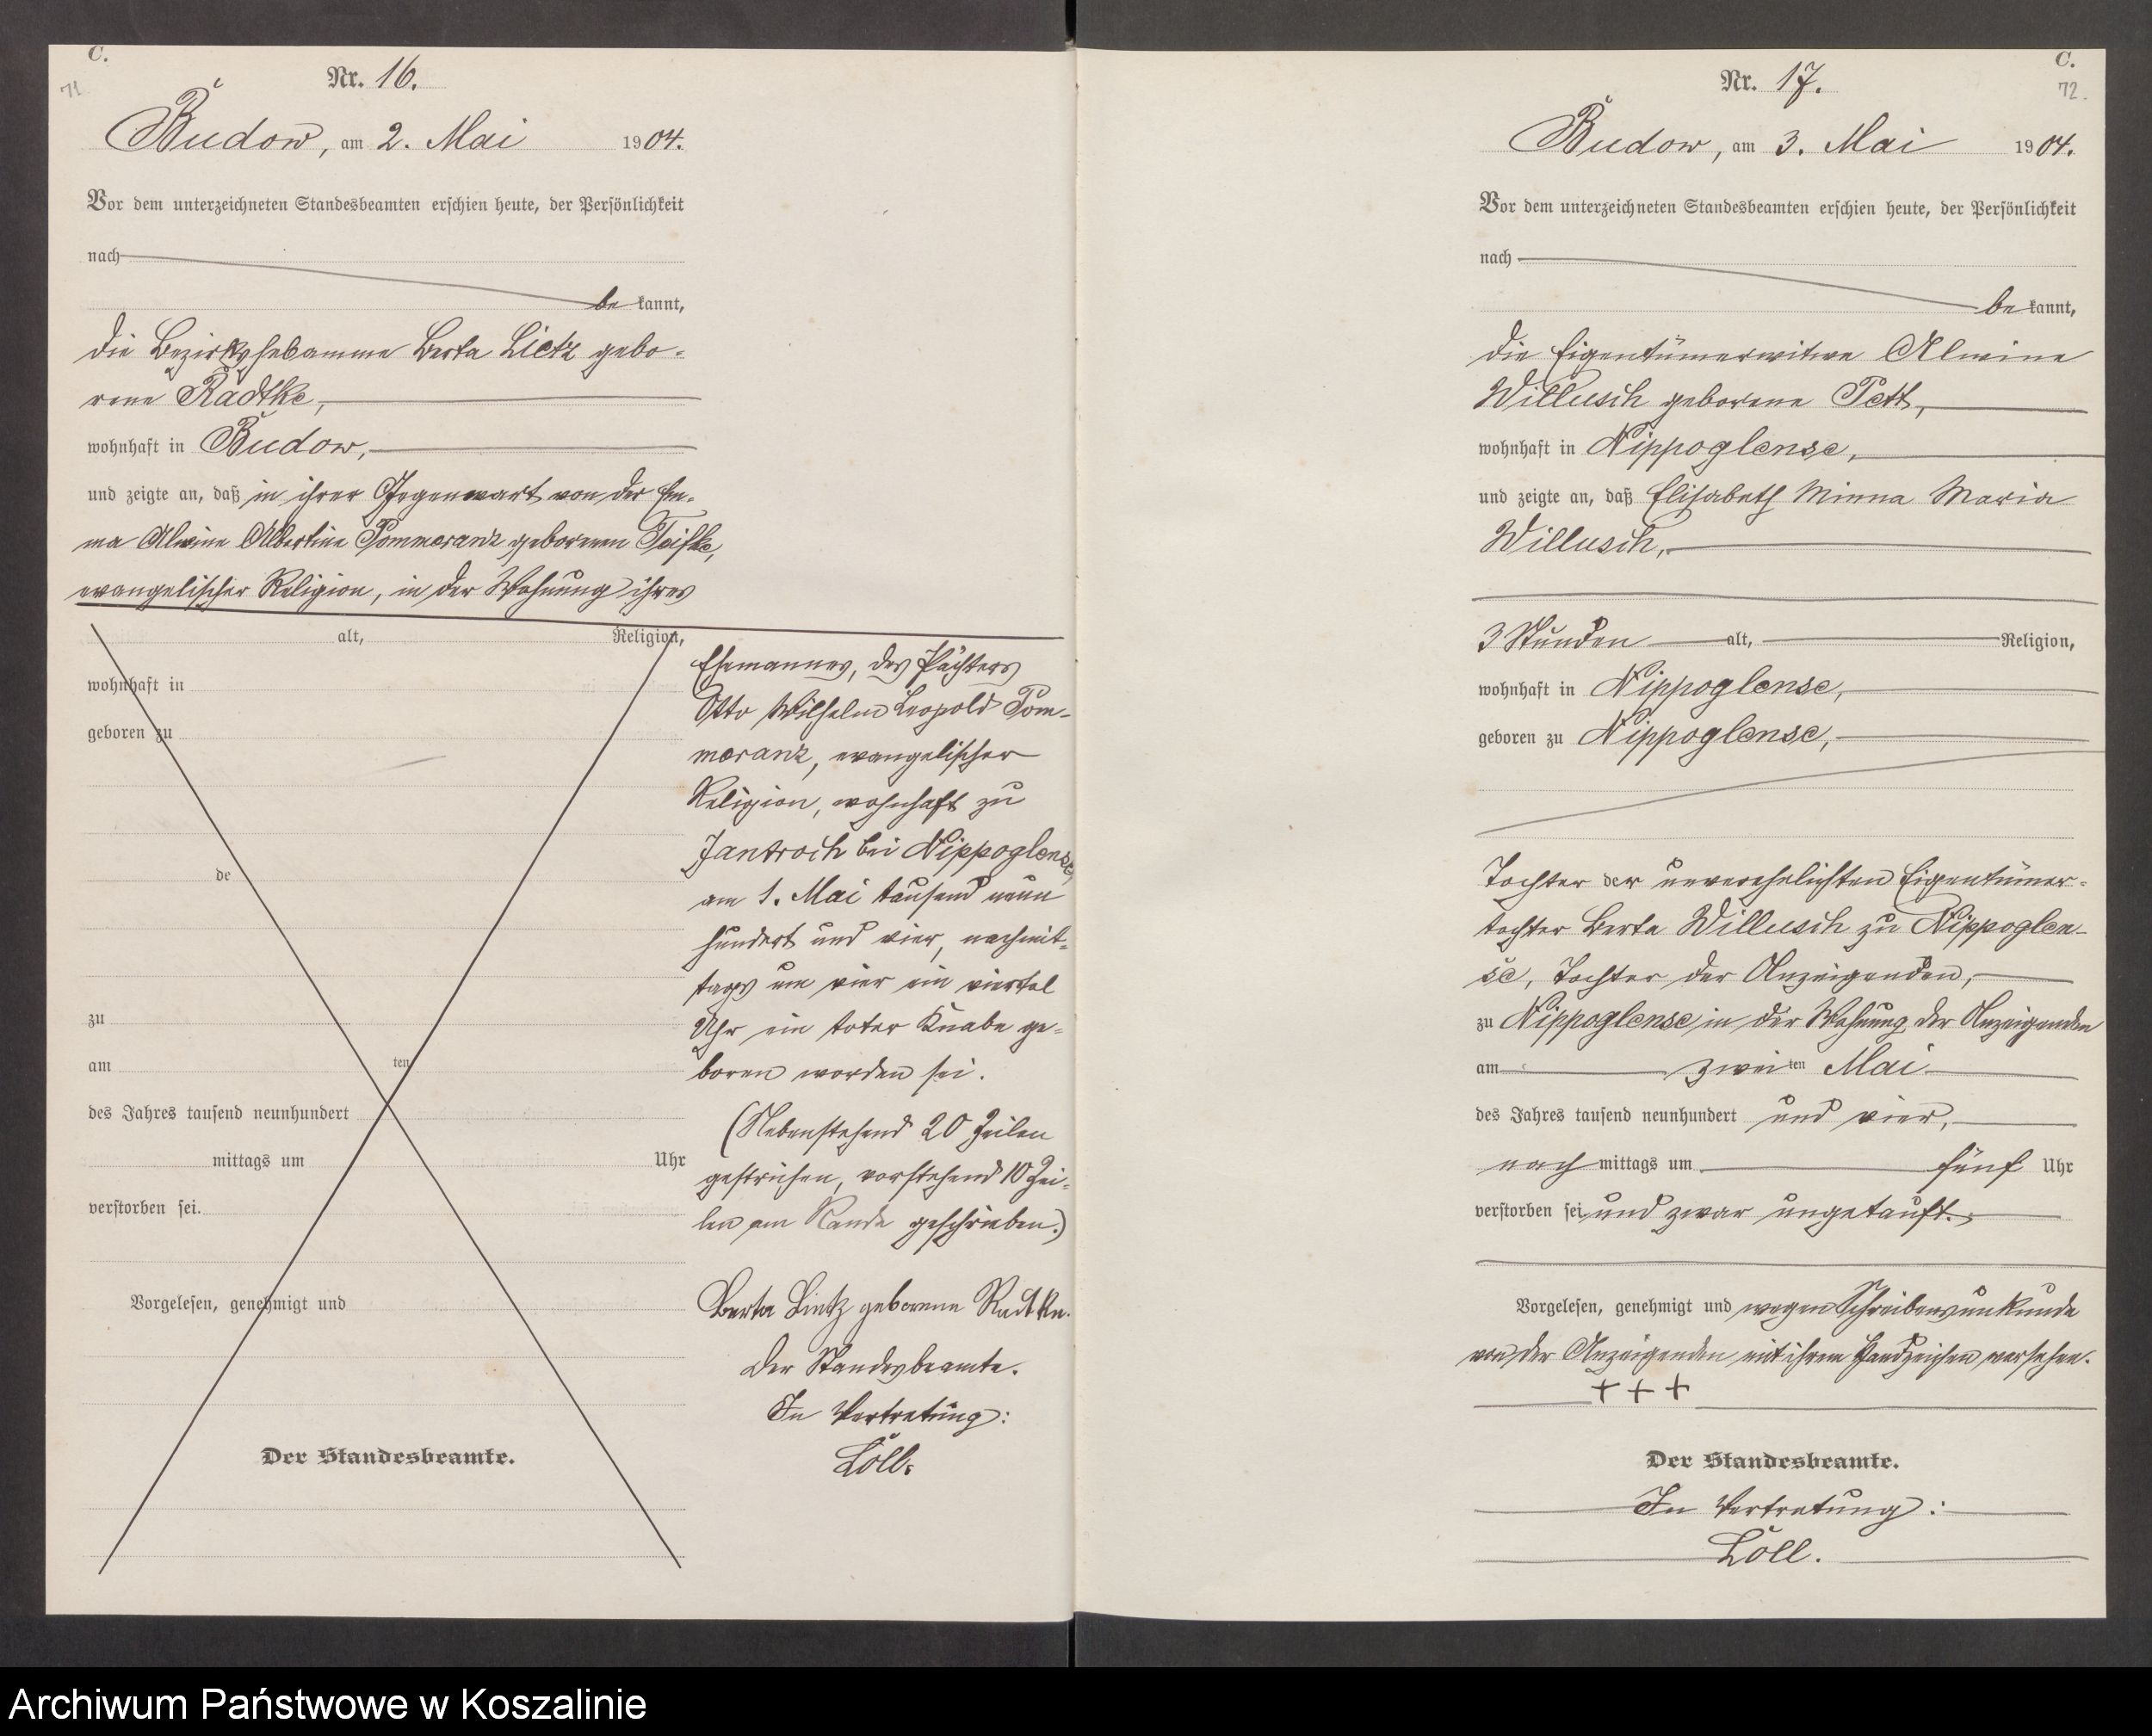 C.
71
Nr. 16.
Budow, am 2. Mai 1904.
Vor dem unterzeichneten Standesbeamten erschien heute, der Persönlichkeit
nach
be kannt,
die Bezirkshebamme Berta Lietz gebo-
rene Radtke,
wohnhaft in Budow,
und zeigte an, daß in ihrer Gegenwart von der Em-
ma Alwine Albertine Pommeranz geborenen Teifke,
evangelischer Religion, in der Wohnung ihres
alt, Religion,
wohnhaft in
geboren zu
de
zu
am ten
des Jahres tausend neunhundert
mittags um Uhr
verstorben sei.
Vorgelesen, genehmigt und
Der Standesbeamte.
Ehemannes, des Pächters
Otto Wilhelm Leopold Pom-
meranz, evangelischer
Religion, wohnhaft zu
Jantroch bei Nippoglense,
am 1. Mai tausend neun
hundert und vier, nachmit-
tags um vier ein viertel
Uhr ein toter Knabe ge-
boren worden sei.
(Nebenstehend 20 Zeilen
gestrichen, vorstehend 10 Zei-
len am Rande geschrieben.)
Berta Lietz geborene Radtke.
Der Standesbeamte.
In Vertretung:
Löll.
C.
72.
Nr. 17.
Budow, am 3. Mai 1904.
Vor dem unterzeichneten Standesbeamten erschien heute, der Persönlichkeit
nach
be kannt,
die Eigentümerwitwe Alwine
Willusch geborene Pett,
wohnhaft in Nippoglense,
und zeigte an, daß Elisabeth Minna Maria
Willusch,
3 Stunden alt, Religion,
wohnhaft in Nippoglense,
geboren zu Nippoglense,
Tochter der unverehelichten Eigentümer-
tochter Berta Willusch zu Nippoglen-
se, Tochter der Anzeigenden,
zu Nippoglense in der Wohnung der Anzeigenden
am zwei ten Mai
des Jahres tausend neunhundert und vier,
nach mittags um fünf Uhr
verstorben sei und zwar ungetauft.
Vorgelesen, genehmigt und wegen Schreibensunkunde
von der Anzeigenden mit ihrem Handzeichen versehen.
+ + +
Der Standesbeamte.
In Vertretung:
Löll.
Archiwum Państwowe w Koszalinie